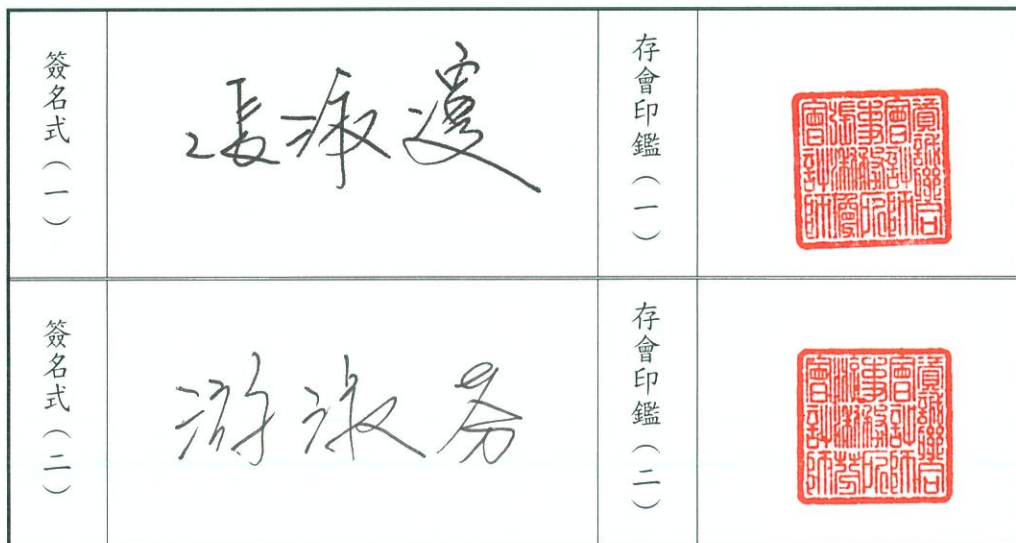 簽名式(一)
張淑瓊
存會印鑑(一)
資誠聯合
會計師
事務所
張淑瓊
會計師
簽名式(二)
游淑芬
存會印鑑(二)
資誠聯合
會計師
事務所
游淑芬
會計師